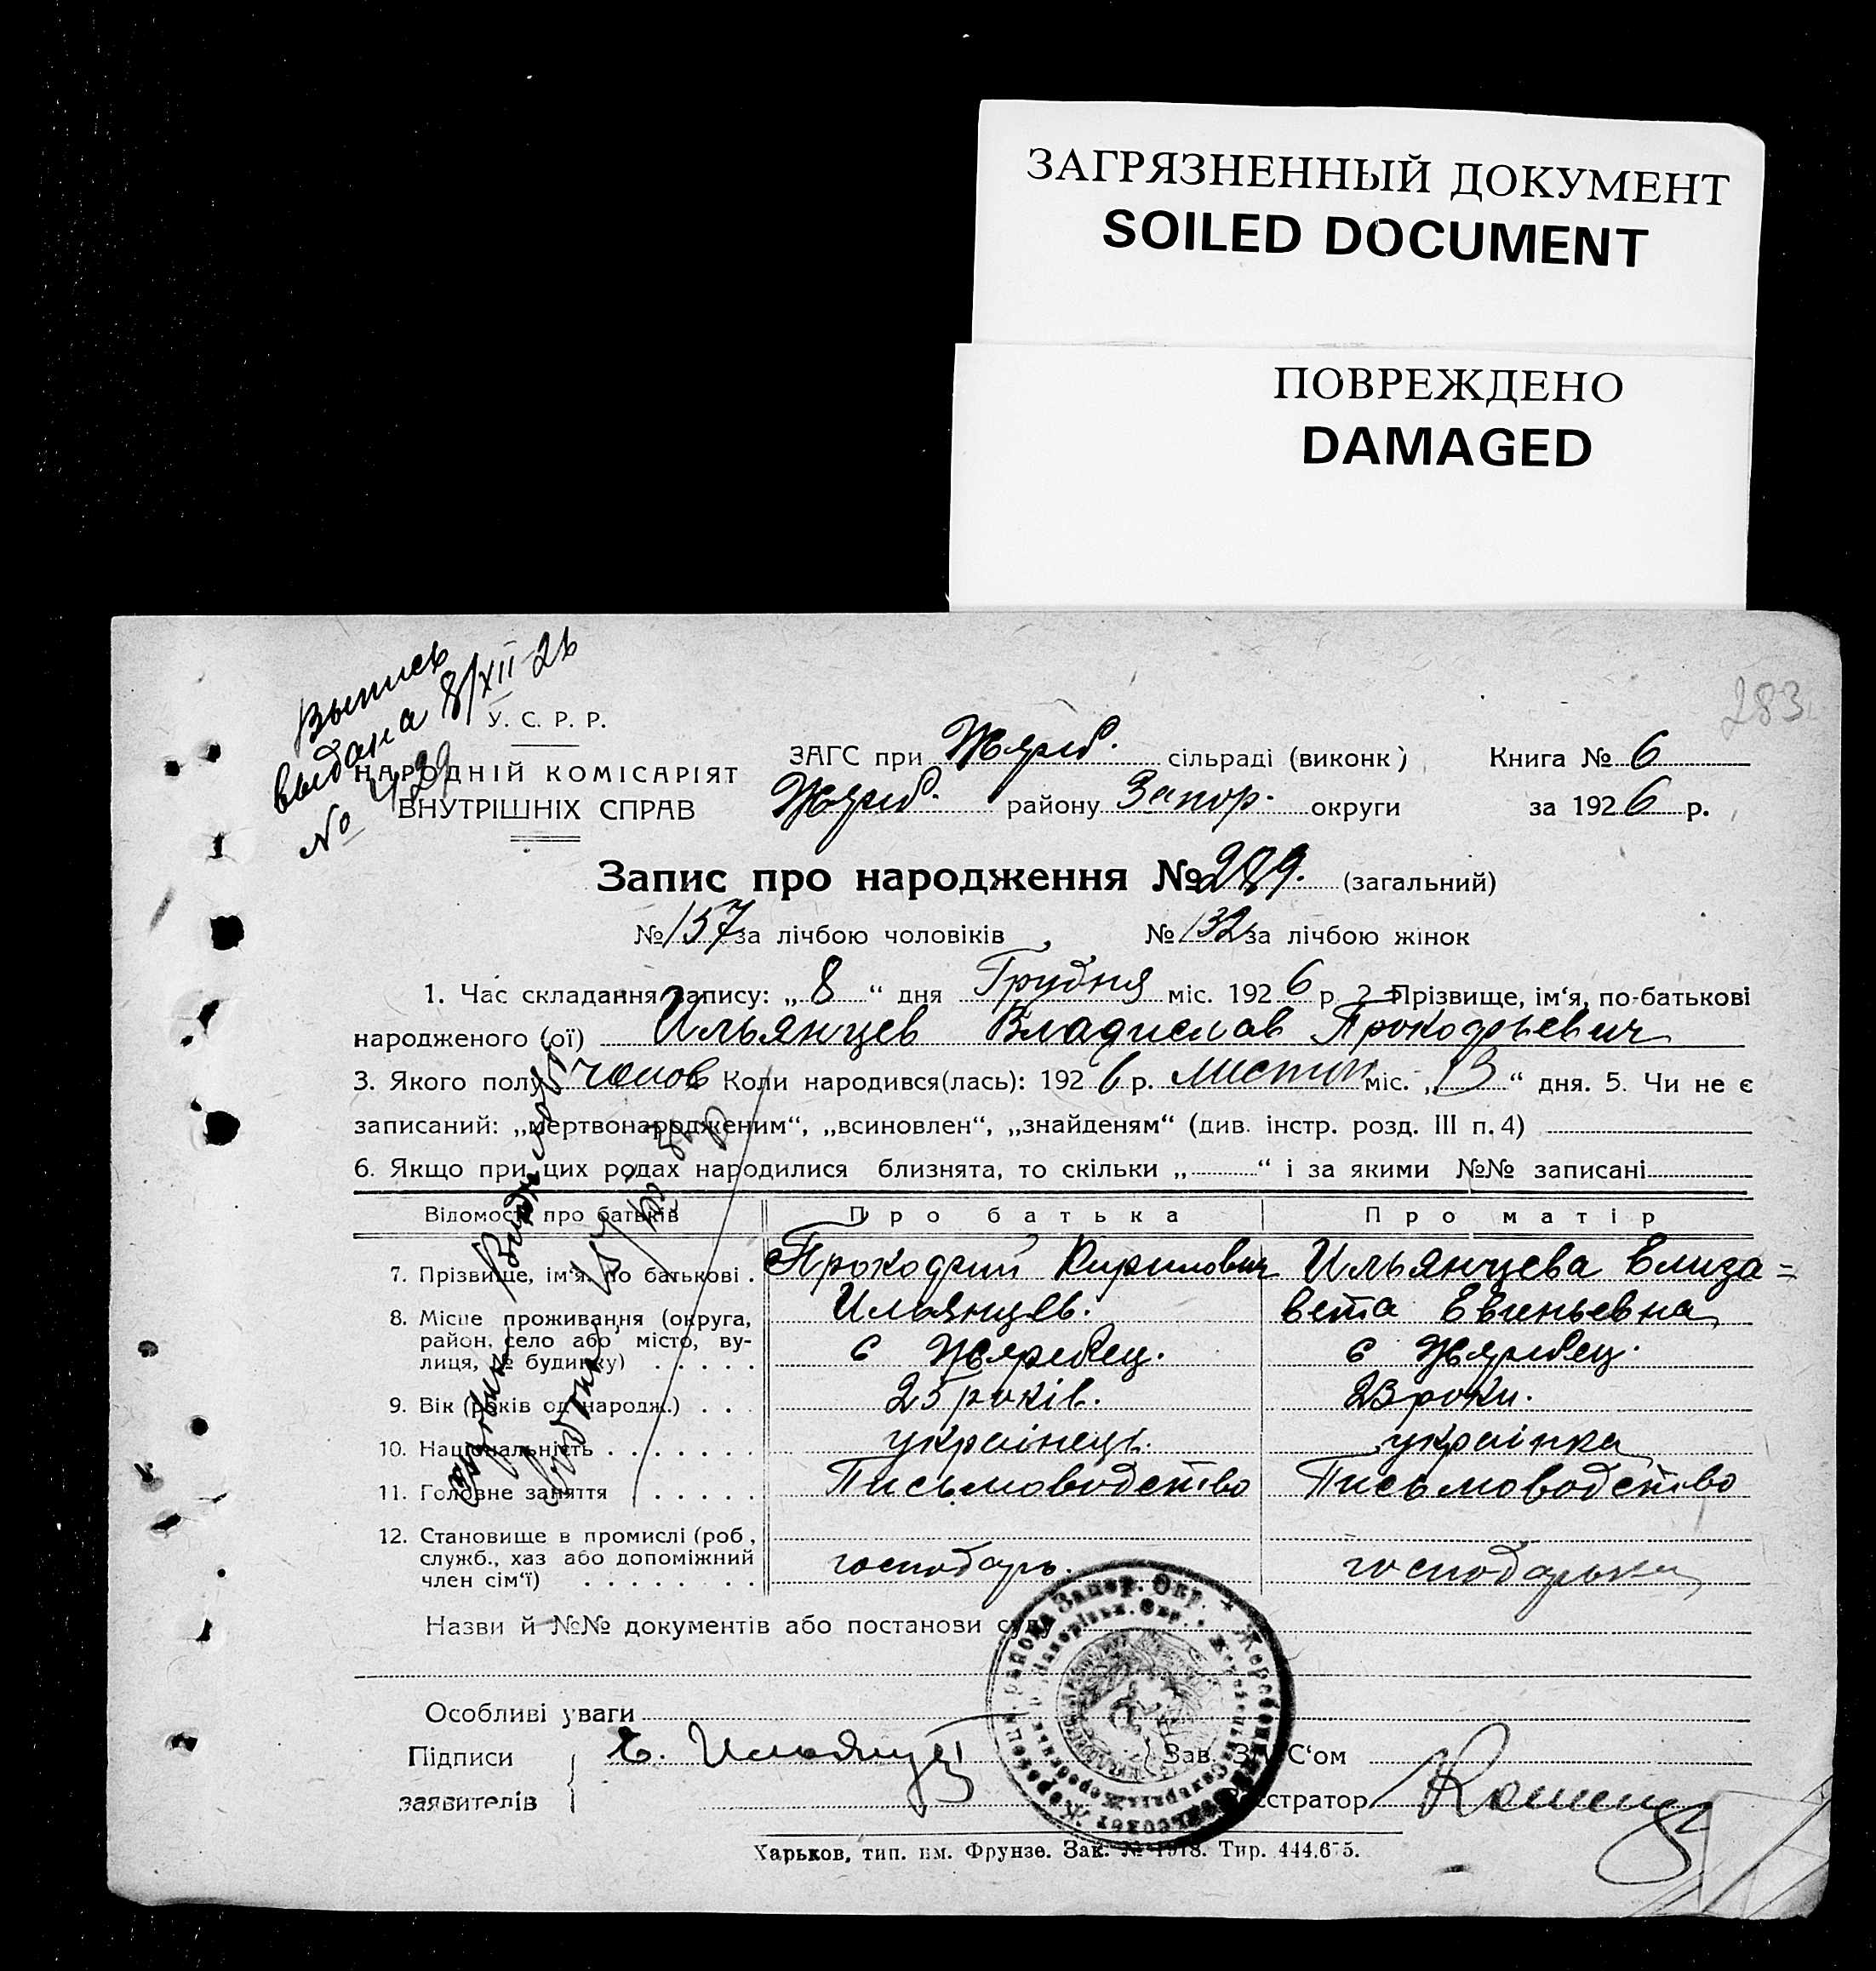 ЗАГРЯЗНЕННЫЙ ДОКУМЕНТ
SOILED DOCUMENT
ПОВРЕЖДЕНО
DAMAGED
Выпись
выдана 8/XII-26
№ 429
283
У. С. Р. Р.
НАРОДНІЙ КОМІСАРІЯТ
ВНУТРІШНІХ СПРАВ
ЗАГС при Жереб. сільраді (виконк)
Жереб. району Запор. округи
Книга № 6
за 1926 р.
Запис про народження № 289. (загальний)
№ 157 за лічбою чоловіків № 132 за лічбою жінок
1. Час складання запису: „ 8 “ дня Грудня міс. 1926 р. 2. Прізвище, ім‘я, по-батькові
народженого (ої) Ильянцев Владислав Прокофьевич
3. Якого полу чолов Коли народився(лась): 1926 р. листоп міс. „ 13 “ дня. 5. Чи не є
записаний: „мертвонародженим“, „всиновлен“, „знайденям“ (див. інстр. розд. III п. 4)
6. Якщо при цих родах народилися близнята, то скільки „ “ і за якими №№ записані
Відомості про батьків Про батька Про матір
7. Прізвище, ім‘я, по батькові . Прокофий Кирилович Ильянцева Елиза=
Ильянцев. вета Евгеньевна
8. Місце проживання (округа,
район, село або місто, ву-
лиця, № будинку) . . . . . с Жеребец. с Жеребец.
9. Вік (років од народж.) . . . 25 років. 23 роки.
10. Національність . . . . . . . українець. українка
11. Головне заняття . . . . . Письмоводство Письмоводство
12. Становище в промислі (роб,
служб., хаз або допоміжний
член сім‘ї) . . . . . . . господарь. господарька
Назви й №№ документів або постанови суду
Особливі уваги
Підписи
заявителів
Е. Ильянцев
Зав. ЗАГС‘ом
Реєстратор
Харьков, тип. им. Фрунзе. Зак. № 1918. Тир. 444.675.